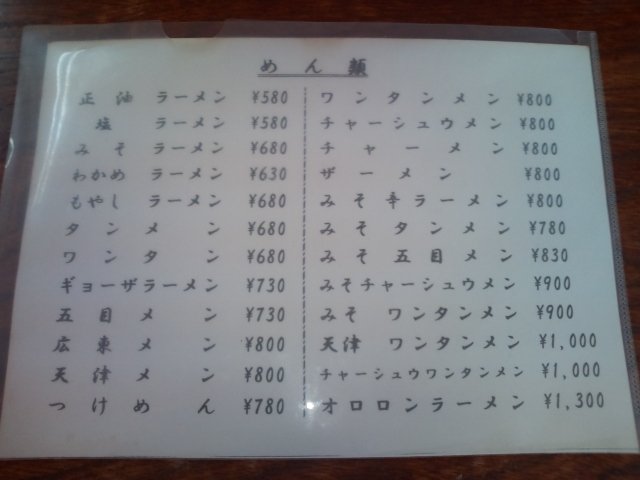 めん類
正油 ラーメン ¥580
塩 ラーメン ¥580
みそ ラーメン ¥680
わかめ ラーメン ¥630
もやし ラーメン ¥680
タンメン ¥680
ワンタン ¥680
ギョーザラーメン ¥730
五目メン ¥730
広東メン ¥800
天津メン ¥800
つけめん ¥780
ワンタンメン ¥800
チャーシュウメン ¥800
チャーメン ¥800
ザーメン ¥800
みそ辛ラーメン ¥800
みそタンメン ¥780
みそ五目メン ¥830
みそチャーシュウメン ¥900
みそ ワンタンメン ¥900
天津 ワンタンメン ¥1,000
チャーシュウワンタンメン ¥1,000
オロロンラーメン ¥1,300